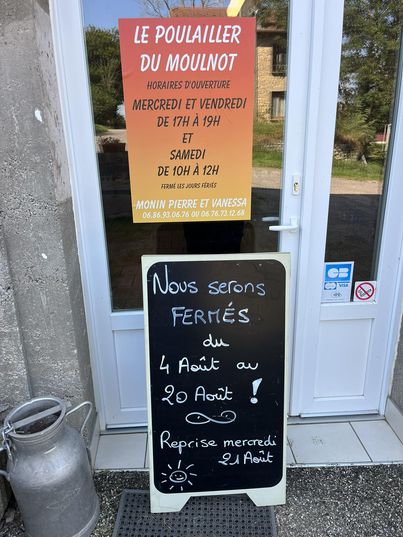 LE POULAILLER
DU MOULNOT
HORAIRES D'OUVERTURE
MERCREDI ET VENDREDI
DE 17H À 19H
ET
SAMEDI
DE 10H À 12H
FERMÉ LES JOURS FÉRIÉS
MONIN PIERRE ET VANESSA
06.86.93.06.76 OU 06.76.73.12.68
CB
VISA
Nous serons
FERMÉS
du
4 Août au
20 Août !
Reprise mercredi
21 Août